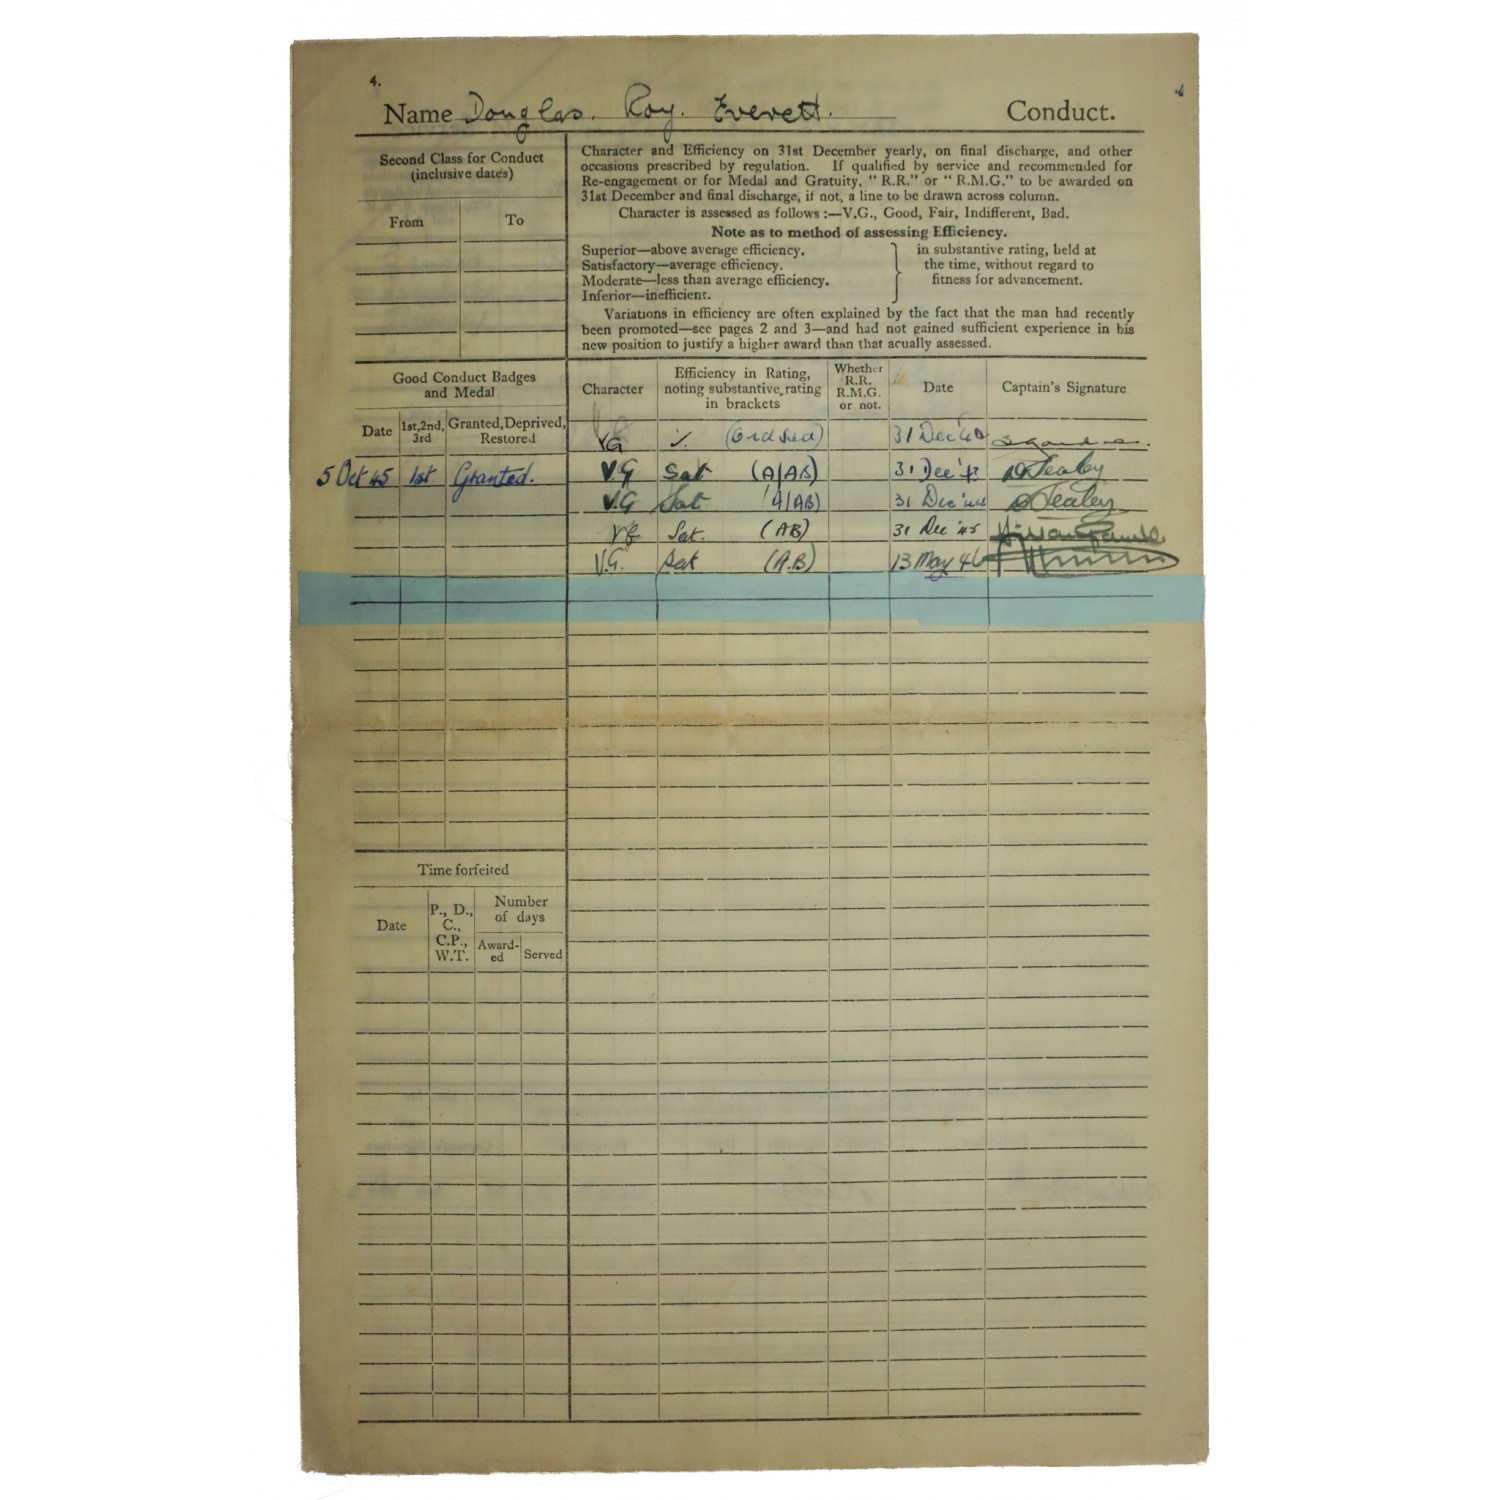 4.
Name Douglas. Roy. Everett. Conduct.
Second Class for Conduct
(inclusive dates)
From To
Character and Efficiency on 31st December yearly, on final discharge, and other
occasions prescribed by regulation. If qualified by service and recommended for
Re-engagement or for Medal and Gratuity, "R.R." or "R.M.G." to be awarded on
31st December and final discharge, if not, a line to be drawn across column.
Character is assessed as follows :—V.G., Good, Fair, Indifferent, Bad.
Note as to method of assessing Efficiency.
Superior—above average efficiency.
Satisfactory—average efficiency.
Moderate—less than average efficiency.
Inferior—inefficient.
in substantive rating, held at
the time, without regard to
fitness for advancement.
Variations in efficiency are often explained by the fact that the man had recently
been promoted—see pages 2 and 3—and had not gained sufficient experience in his
new position to justify a higher award than that acually assessed.
Good Conduct Badges
and Medal
Date 1st, 2nd, 3rd Granted, Deprived, Restored
Character
Efficiency in Rating,
noting substantive rating
in brackets
Whether
R.R.
R.M.G.
or not.
Date
Captain's Signature
VG 31 Dec
5 Oct 45 1st Granted. V.G Sat (A/AB) 31 Dec Sealey
V.G Sat (A/AB) 31 Dec '44 Sealey
VG Sat. (AB) 31 Dec '45
V.G. Sat (A.B) 13 May 46
Time forfeited
Date
P., D.,
C.,
C.P.,
W.T.
Number
of days
Award-
ed
Served